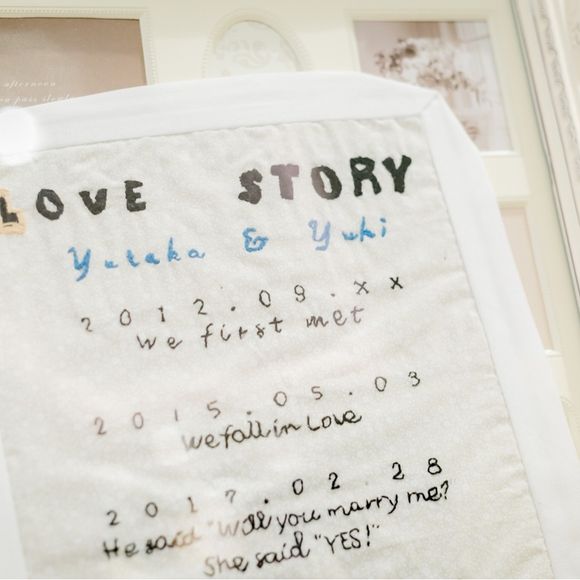 afternoon
LOVE STORY
Yutaka & Yuki
2012.09.xx
We first met
2015.05.03
We fall in Love
2017.02.28
He said "Will you marry me?
She said "YES!"